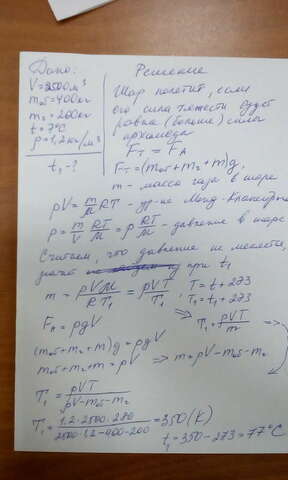 Дано:
V=2500м³
mоб=400кг
m₂=200кг
t=7°C
ρ=1,2кг/м³
t₁-?
Решение
Шар полетит, если
его сила тяжести будет
равна (больше) силы
архимеда
Fт = FA
Fт=(mоб+m₂+m)g,
m - масса газа в шаре
pV=m/M RT - ур-ие Менд-Клапейрона
p=m/V RT/M=ρ RT/M - давление в шаре
Считаем, что давление не меняется,
значит при t₁
m = pVM/RT₁ = ρVT/T₁, T=t+273
T₁=t₁+273
FA=ρgV => T₁=ρVT/m =>
(mоб+m₂+m)g=ρgV
mоб+m₂+m=ρV => m=ρV-mоб-m₂
T₁=ρVT/ρV-mоб-m₂
T₁=1,2·2500·280/2500·1,2-400-200=350(K)
t₁=350-273=77°C